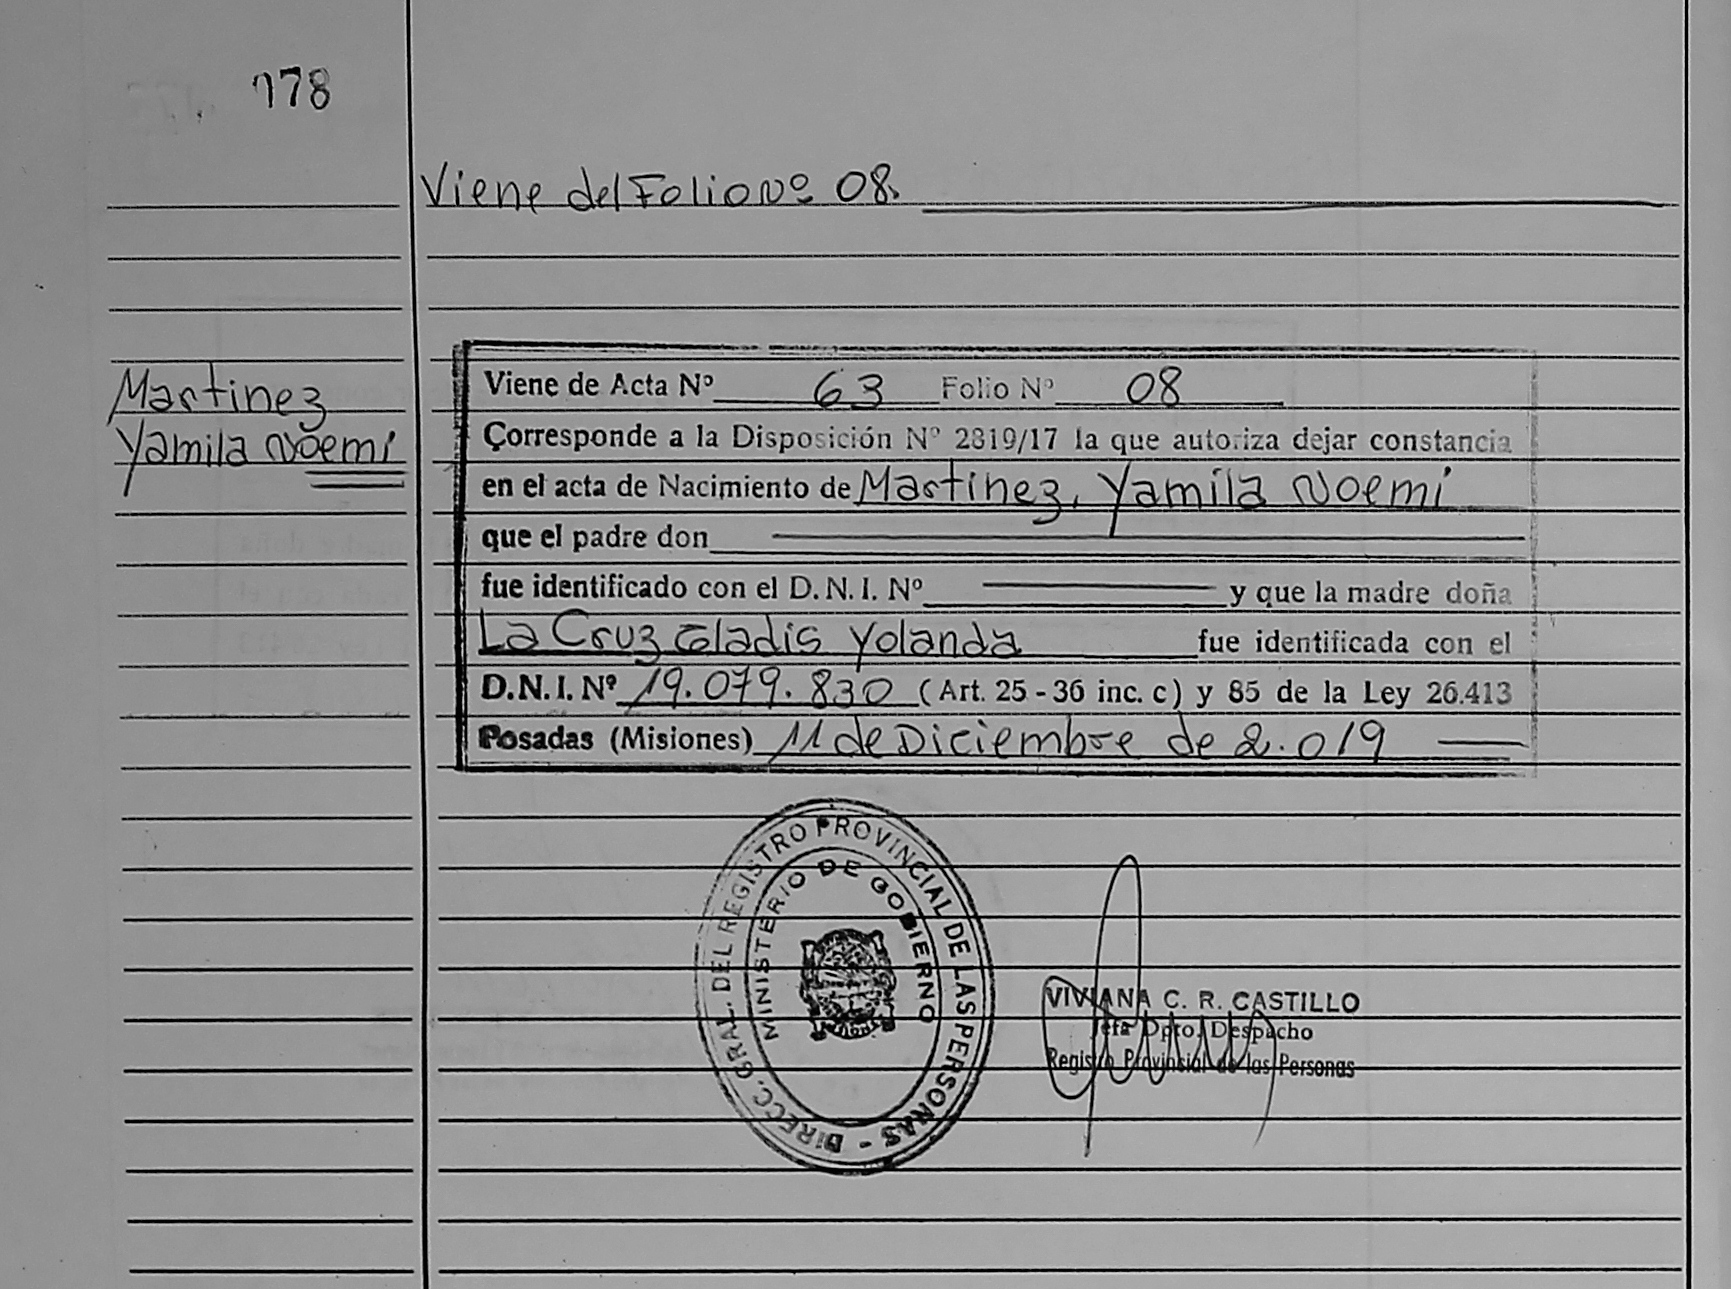 178
Viene del Folio Nº 08.
Martinez
Yamila Noemí
Viene de Acta Nº 63 Folio Nº 08
Corresponde a la Disposición Nº 2819/17 la que autoriza dejar constancia
en el acta de Nacimiento de Martinez, Yamila Noemí
que el padre don
fue identificado con el D. N. I. Nº y que la madre doña
La Cruz Gladis Yolanda fue identificada con el
D.N.I. Nº 19.079.830 (Art. 25 - 36 inc. c) y 85 de la Ley 26.413
Posadas (Misiones) 11 de Diciembre de 2.019
DIRECC. GRAL. DEL REGISTRO PROVINCIAL DE LAS PERSONAS -
MINISTERIO DE GOBIERNO
VIVIANA C. R. CASTILLO
Jefa Dpto. Despacho
Registro Provincial de las Personas